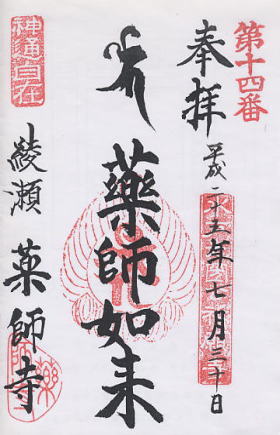 第十四番
奉拝
平成二十五年七月三十日
薬師如来
綾瀬 薬師寺